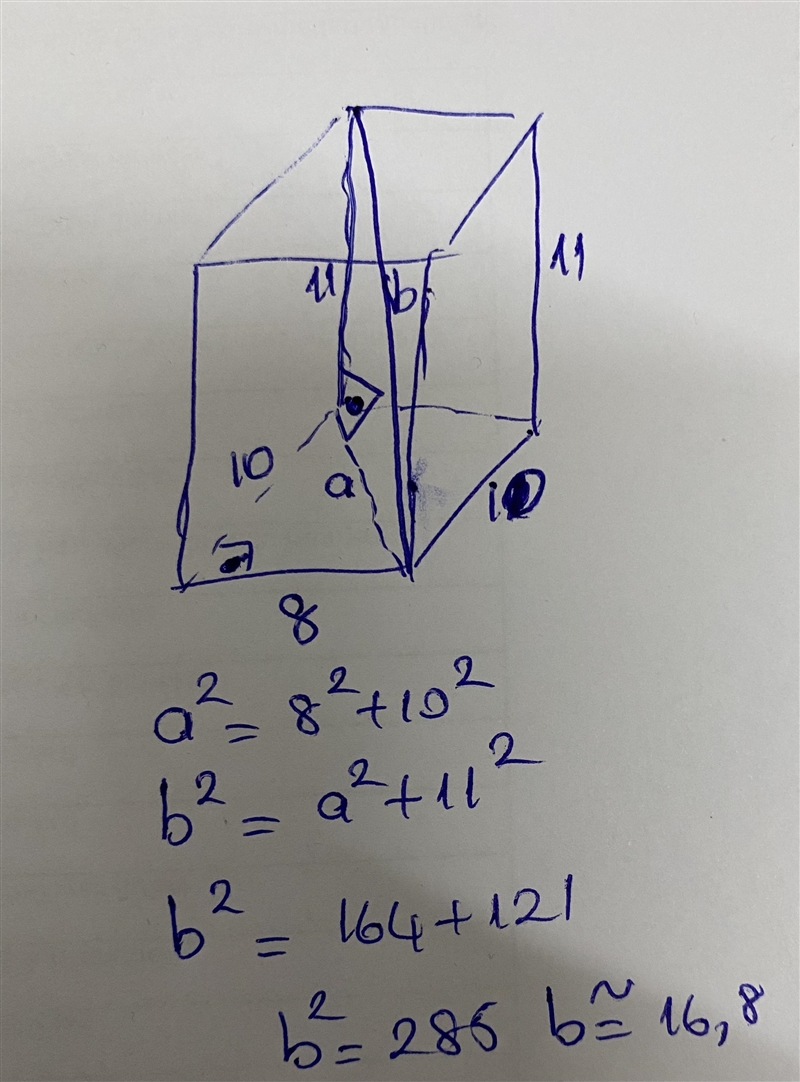 11
11 b
10
a
10
8
a² = 8² + 10²
b² = a² + 11²
b² = 164 + 121
b² = 285 b ≅ 16,8